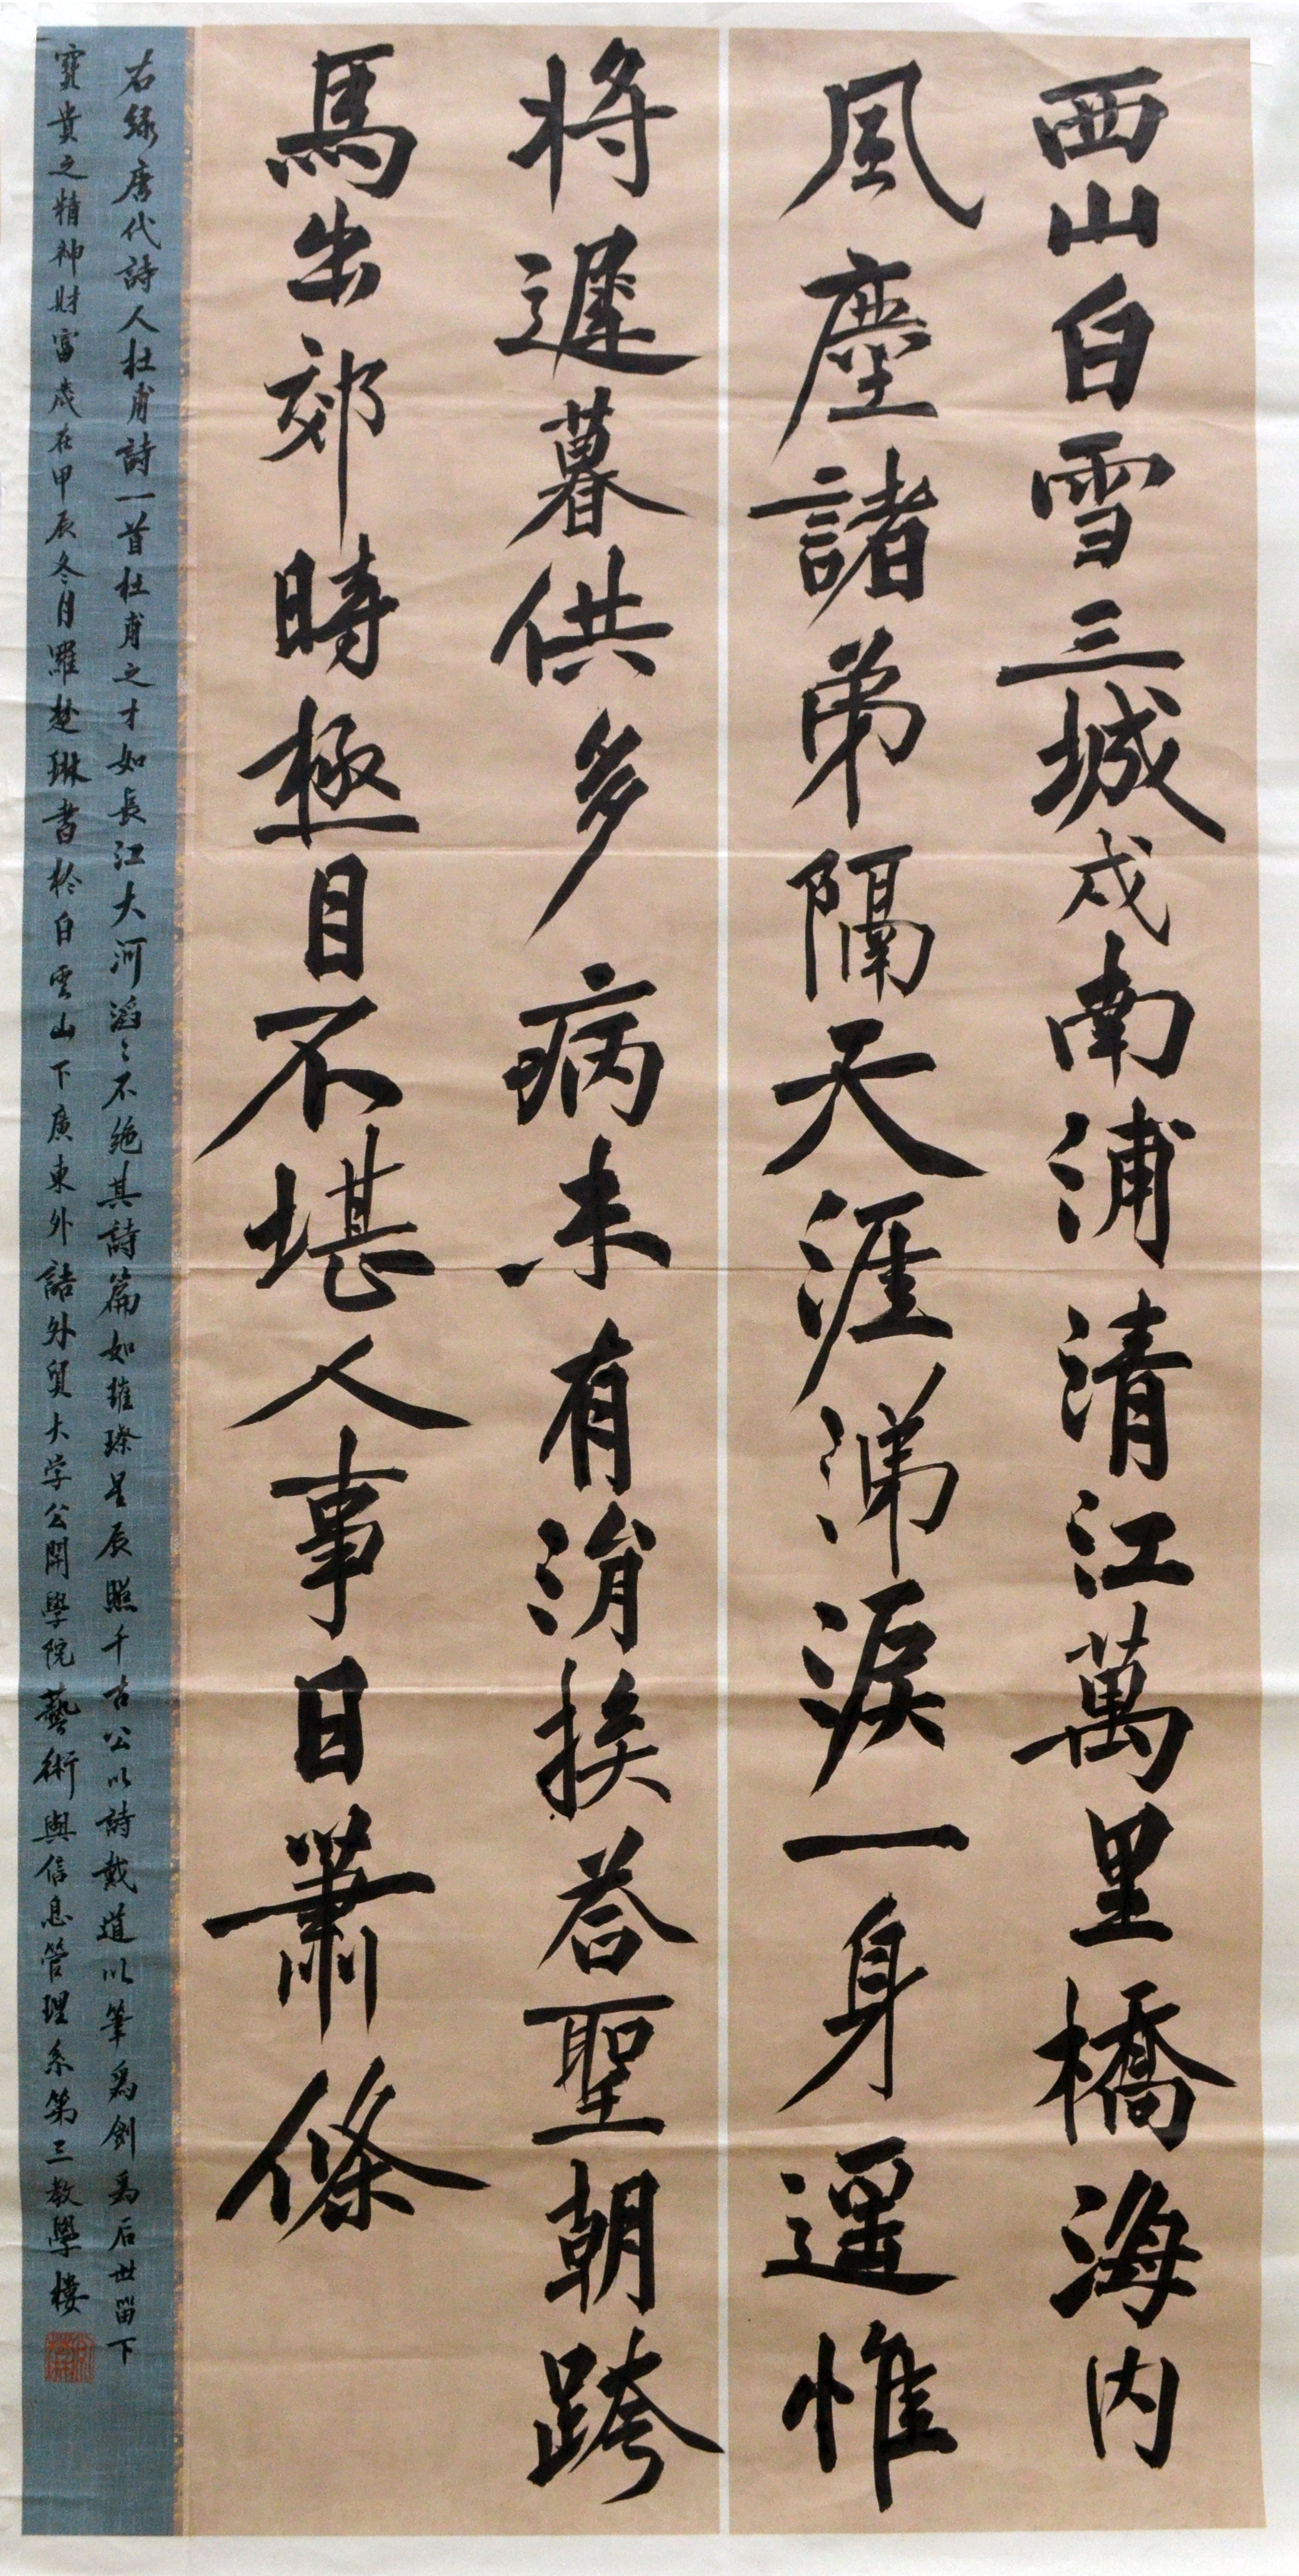 西山白雪三城戍南浦清江萬里橋海内
風塵諸弟隔天涯涕淚一身遥惟
将遲暮供多病未有涓挨荅聖朝跨
馬出郊時極目不堪人事日蕭條
右録唐代詩人杜甫詩一首杜甫之才如長江大河滔〻不绝其詩篇如璀璨星辰照千古公以詩載道以筆為劍為后世留下
寳貴之精神財富歲在甲辰冬月羅楚琳書於白雲山下廣東外語外貿大学公開學院藝術與信息管理系第三教學樓